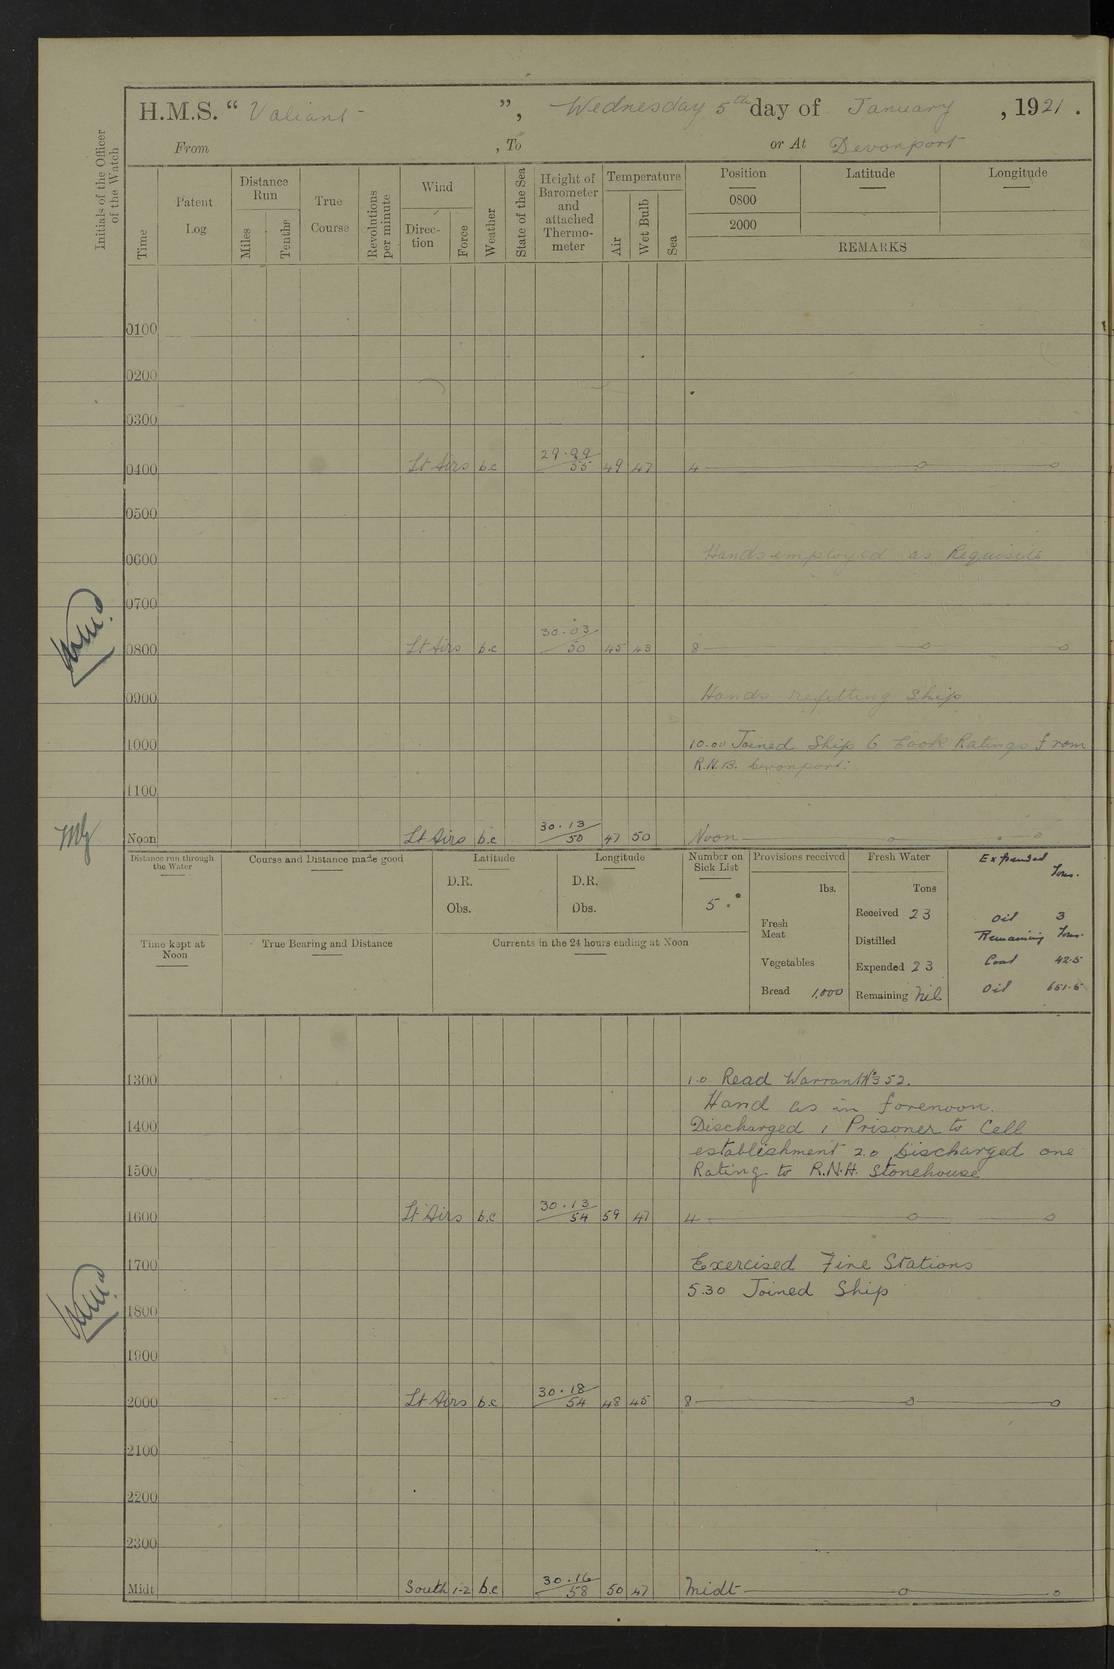 H.M.S. “ Valiant - ”, Wednesday 5th day of January, 1921.
From , To or At Devonport
Initials of the Officer of the Watch
Time
Patent Log
Distance Run
Miles
Tenths
True Course
Revolutions per minute
Wind
Direction
Force
Weather
State of the Sea
Height of Barometer and attached Thermometer
Temperature
Air
Wet Bulb
Sea
Position Latitude Longitude
0800
2000
REMARKS
0100
0200
0300
0400 Lt Airs b.c 29.99/55 49 47 4
0500
0600 Hands employed as Requisite
0700
0800 Lt Airs b.c 30.03/50 45 43 8
0900 Hands refitting Ship
1000 10.00 Joined Ship 6 Cook Ratings from
R.N.B. Devonport.
1100
Noon Lt Airs b.c 30.13/50 47 50 Noon
Distance run through the Water
Course and Distance made good
Latitude
D.R.
Obs.
Longitude
D.R.
Obs.
Number on Sick List
5.
Provisions received
lbs.
Fresh Meat
Vegetables
Bread 1,000
Fresh Water
Tons
Received 23
Distilled
Expended 23
Remaining Nil
Expended Tons.
Oil 3
Remaining Tons.
Coal 42.5
Oil 651.5
Time kept at Noon
True Bearing and Distance
Currents in the 24 hours ending at Noon
1300 1.0 Read Warrant No 352.
Hand as in forenoon.
1400 Discharged 1 Prisoner to Cell
establishment 2.0 Discharged one
1500 Rating to R.N.H. Stonehouse
1600 Lt Airs b.c 30.13/54 59 47 4
1700 Exercised Fire Stations
5.30 Joined Ship
1800
1900
2000 Lt Airs b.c 30.18/54 48 45 8
2100
2200
2300
Midt South 1-2 b.c 30.16/58 50 47 Midt